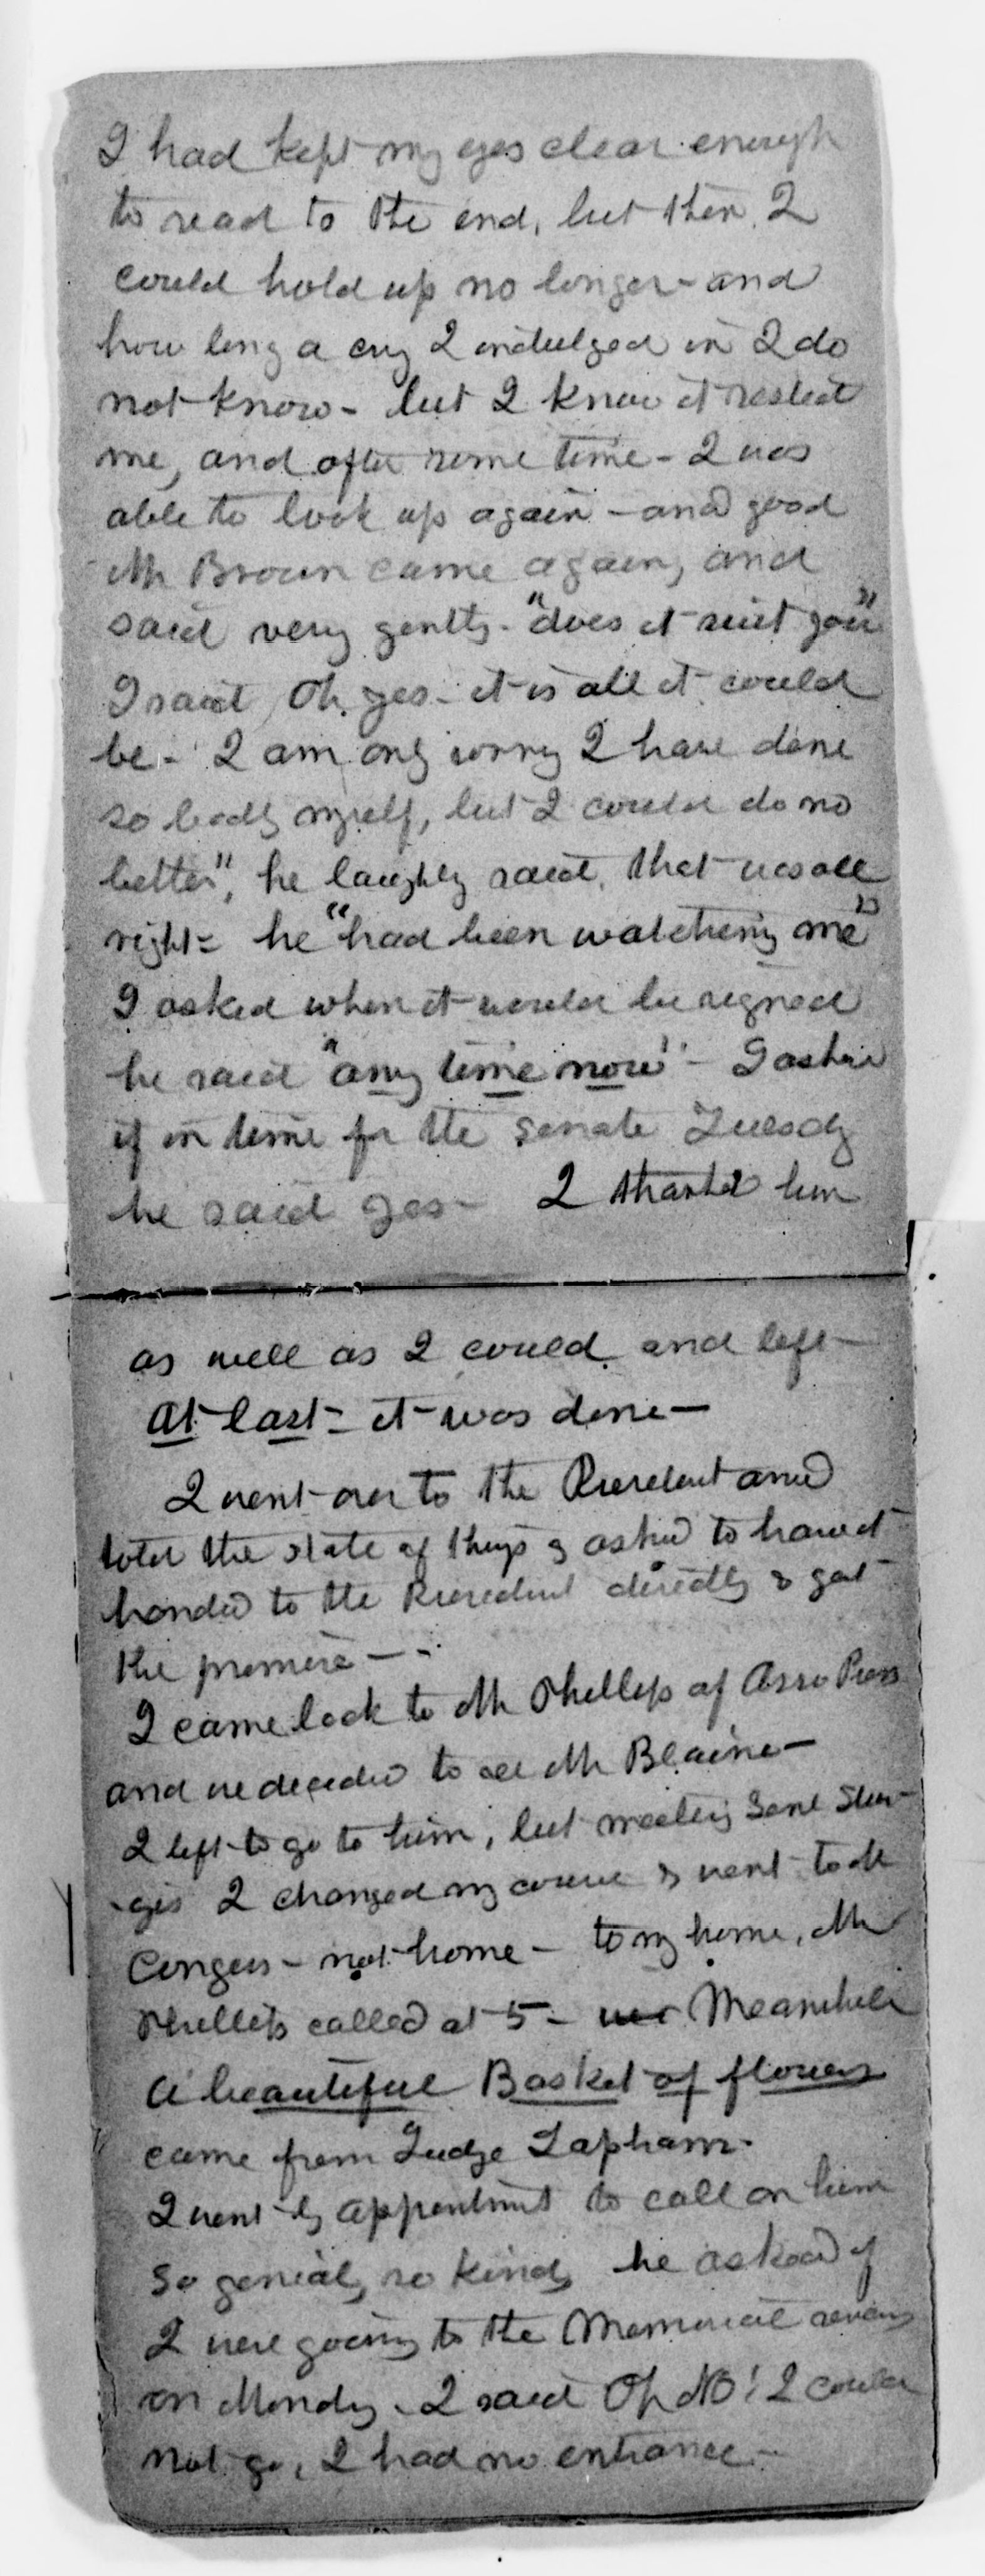 I had kept my eyes clear enough
to read to the end, but then I
could hold up no longer - and
how long a cry I indulged in I do
not know - but I know it rested
me, and after some time - I was
able to look up again - and good
Mr Brown came again, and
said very gently - "does it suit you"
I said, Oh yes - it is all it could
be - I am only sorry I have done
so badly myself, but I could do no
better", he laughly said, that was all
right = he "had been watching me"
I asked when it would be signed
he said "any time now" - I asked
if in time for the Senate Tuesdy
he said yes - I thanked him
as well as I could and left -
At last - it was done -
I went over to the President and
told the state of things & asked to have it
handed to the President directly & got
the promise - -
I came back to Mr Phillips of Asso Press
and we decided to see Mr Blaine -
I left to go to him, but meeting Sane Stur-
-gis I changed my course & went to Mr
Congers - not home - to my home, Mr
Phillips called at 5 - Meanwhile
A beautiful Basket of flowers
came from Judge Lapham -
I went by appointment to call on him
so genial, so kind, he asked if
I were going to the Memorial
on Mondy - I said Oh No! I could
not go, I had no entrance -